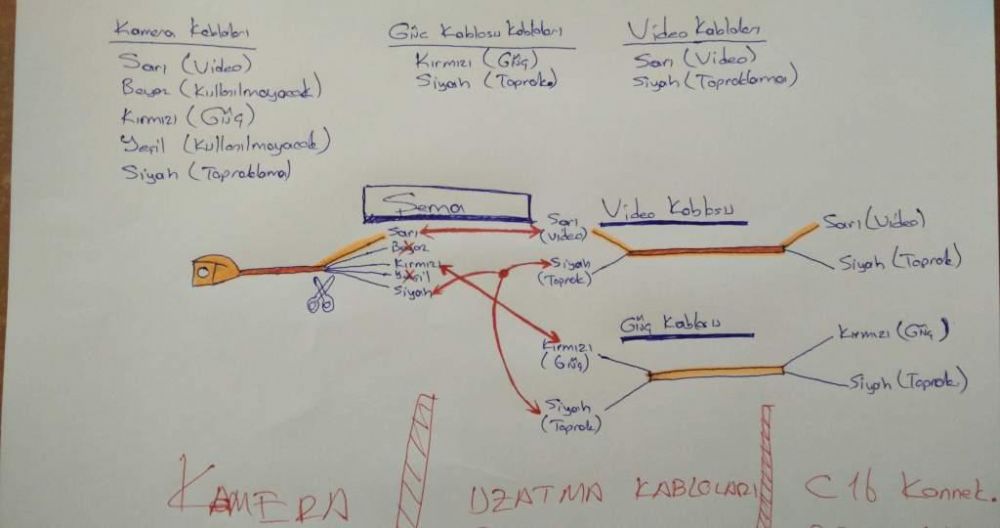 Kamera Kabloları
Sarı (Video)
Beyaz (Kullanılmayacak)
Kırmızı (Güç)
Yeşil (Kullanılmayacak)
Siyah (Topraklama)
Güç Kablosu Kabloları
Kırmızı (Güç)
Siyah (Toprak)
Video Kabloları
Sarı (Video)
Siyah (Topraklama)
Şema
Sarı
Beyaz
Kırmızı
Yeşil
Siyah
Sarı
(Video)
Siyah
(Toprak)
Video Kablosu
Sarı (Video)
Siyah (Toprak)
Kırmızı
(Güç)
Siyah
(Toprak)
Güç Kablosu
Kırmızı (Güç)
Siyah (Toprak)
KAMERA
UZATMA KABLOLARI
C16 Konnek.